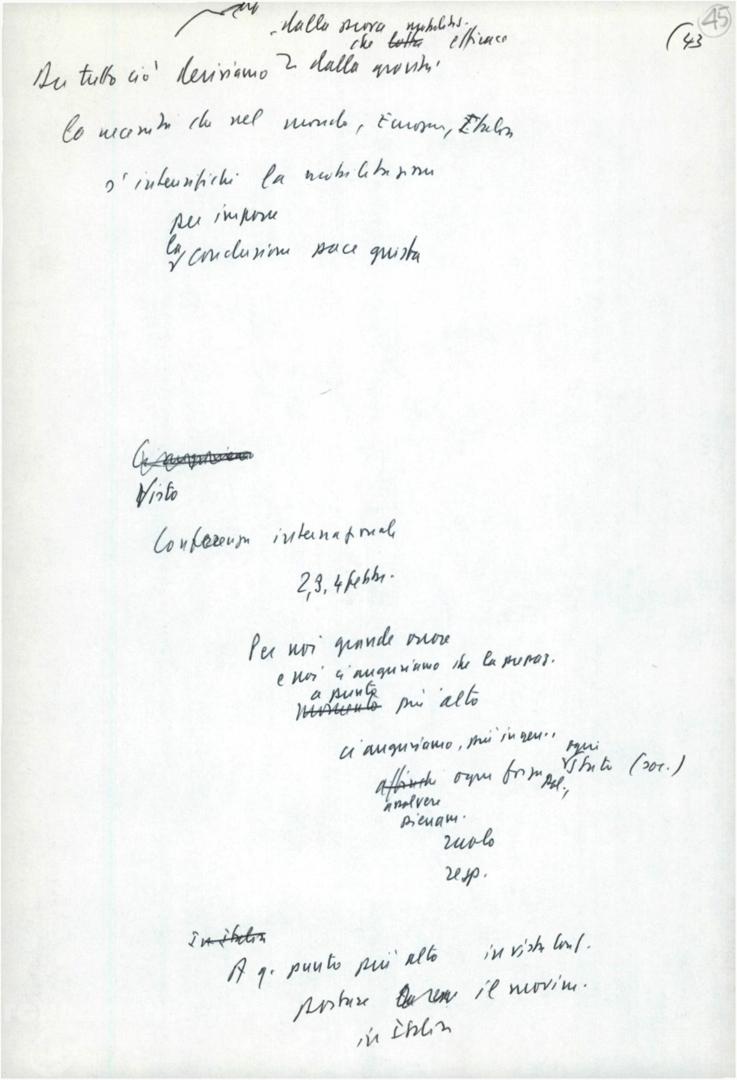 45
(43
dalla nuova mobilit.
che lotta efficace
Da tutto ciò deriviamo dalla gravità
la necessità che nel mondo, Europa, Italia
s'intensifichi la mobilitazione
per imporre
la
conclusione pace giusta
Ci auguriamo
Visto
Conferenza internazionale
2, 3, 4 febbr.
Per noi grande onore
e noi ci auguriamo che la
a punto
momento più alto
ci auguriamo, più in gen.,
ogni
affinché ogni forza pol., Stato (soc.)
assolvere
pienam.
ruolo
resp.
In Italia
A q. punto più alto in vista conf.
portare il movim.
in Italia